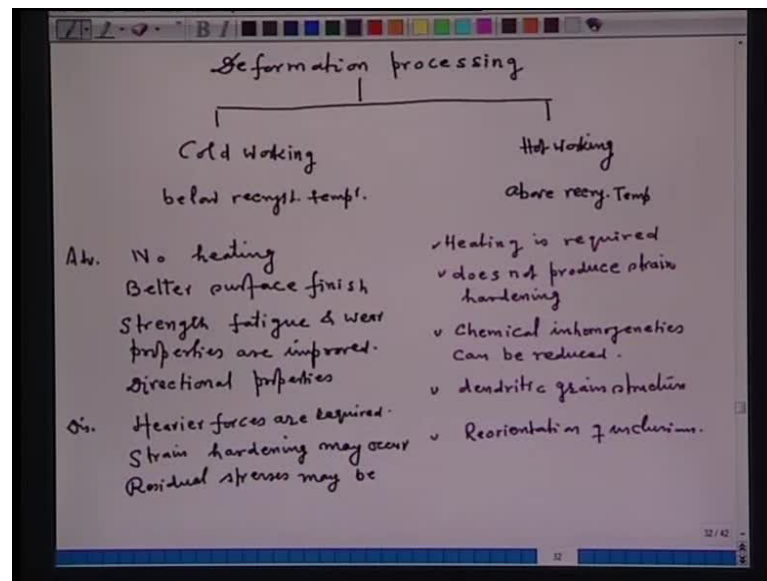 Deformation processing
Cold Working
below recryst. tempr.
Adv. No heating
Better surface finish
Strength fatigue & wear
properties are improved.
Directional properties
Dis. Heavier forces are required.
Strain hardening may occur
Residual stresses may be
Hot Working
Above recry. Temp
Heating is required
does not produce strain
hardening
Chemical inhomogeneties
can be reduced.
dendritic grain structure
Reorientation of inclusions.
32/42
32